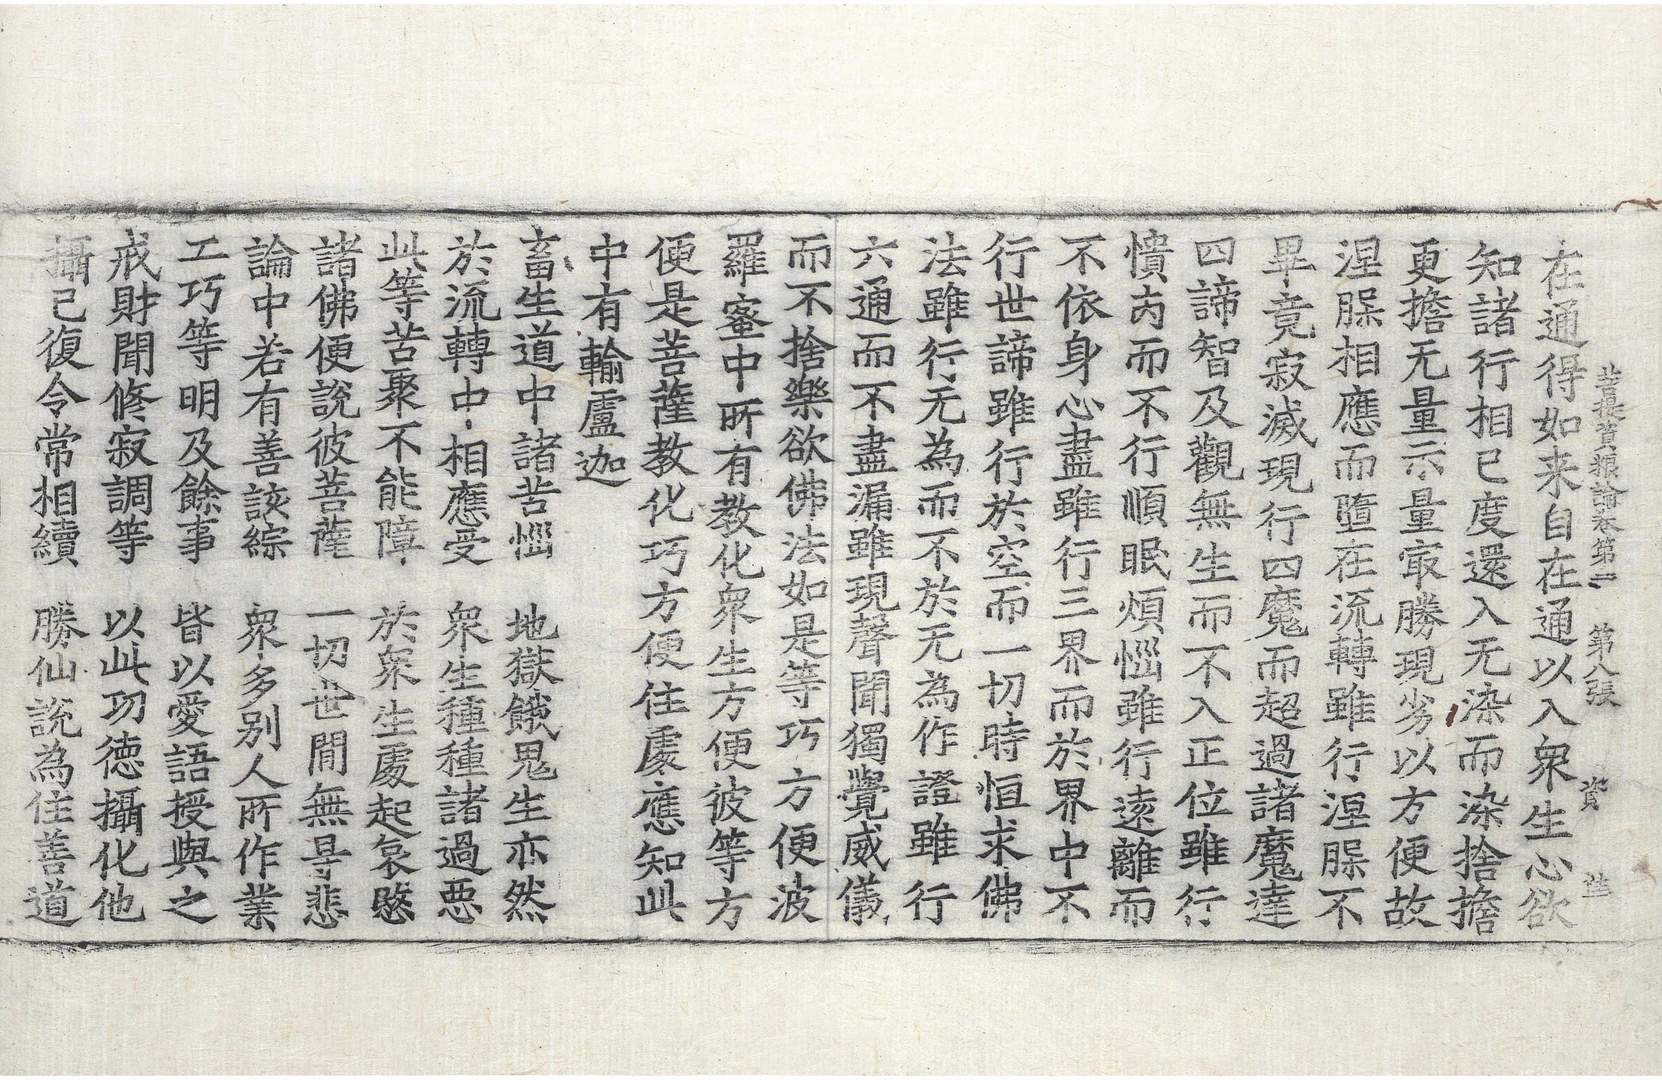 菩提資粮論卷第二　第八張　資
在通得如来自在通以入衆生心欲
知諸行相已度還入无染而染捨擔
更擔无量示量㝡勝現劣以方便故
涅槃相應而墮在流轉雖行涅槃不
畢竟寂滅現行四魔而超過諸魔達
四諦智及觀無生而不入正位雖行
憒內而不行順眠煩惱雖行遠離而
不依身心盡雖行三界而於界中不
行世諦雖行於空而一切時恒求佛
法雖行无為而不於无為作證雖行
六通而不盡漏雖現聲聞獨覺威儀
而不捨樂欲佛法如是等巧方便波
羅蜜中所有教化衆生方便彼等方
便是菩薩教化巧方便住處應知此
中有輸盧迦
畜生道中諸苦惱　地獄餓鬼生亦然
於流轉中相應受　衆生種種諸過惡
此等苦聚不能障　於衆生處起哀愍
諸佛便說彼菩薩　一切世間無㝵悲
論中若有善該綜　衆多别人所作業
工巧等明及餘事　皆以愛語授與之
戒財聞修寂調等　以此功德攝化他
攝已復令常相續　勝仙説為住善道